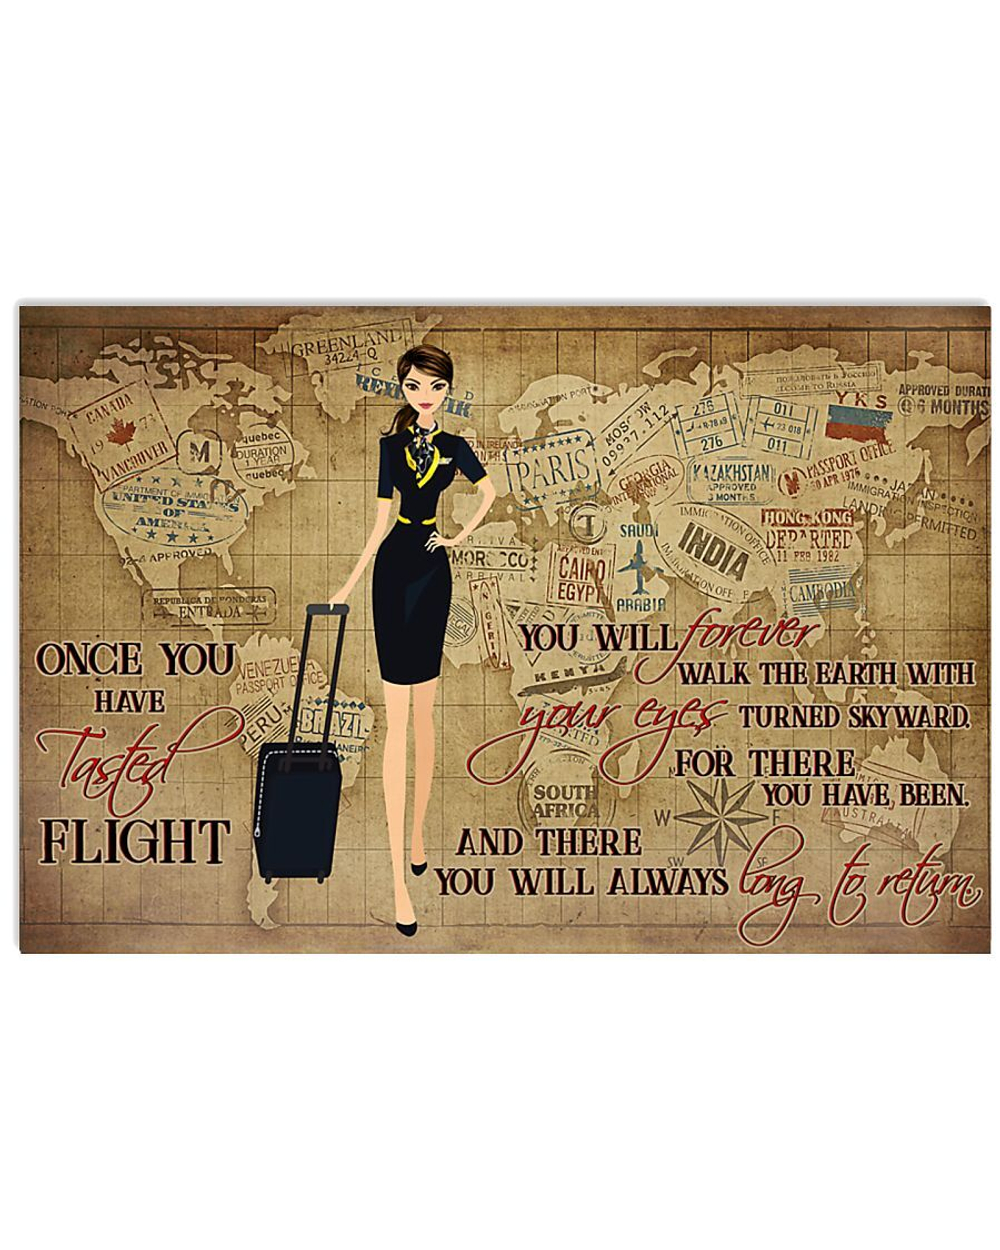 GREENLAND
34224-Q
CANADA
19 73
VANCOUVER
M
quebec
DURATION
1 YEAR
quebec
DEPARTMENT OF IMMIG
UNITED STATES
OF
AMERICA
APPROVED
REPUBLICA DE HONDURAS
ENTRADA
VENEZUELA
PASSPORT OFFICE
PERU
BRAZIL
PARIS
MOSCOW
09937.112
276
276
011
23 018
011
YKS
APPROVED DURATI
6 MONTHS
GEORGIA
INTERNATIONAL
KAZAKHSTAN
APPROVED
3 MONTHS
M PASSPORT OFFICE
30 APR 1976
JAPAN
IMMIGRATION INSPECTION
LANDING PERMITTED
T
SAUDI
ARABIA
IMMIGRATION OFFICE
INDIA
HONG KONG
DEPARTED
11 FEB 1982
CAMBODIA
MOROCCO
ARRIVAL
CAIRO
EGYPT
KENYA
SOUTH
AFRICA
AUSTRALIA
W
SW
ONCE YOU
HAVE
Tasted
FLIGHT
YOU WILL forever
WALK THE EARTH WITH
your eyes TURNED SKYWARD.
FOR THERE
YOU HAVE BEEN.
AND THERE
YOU WILL ALWAYS long to return.